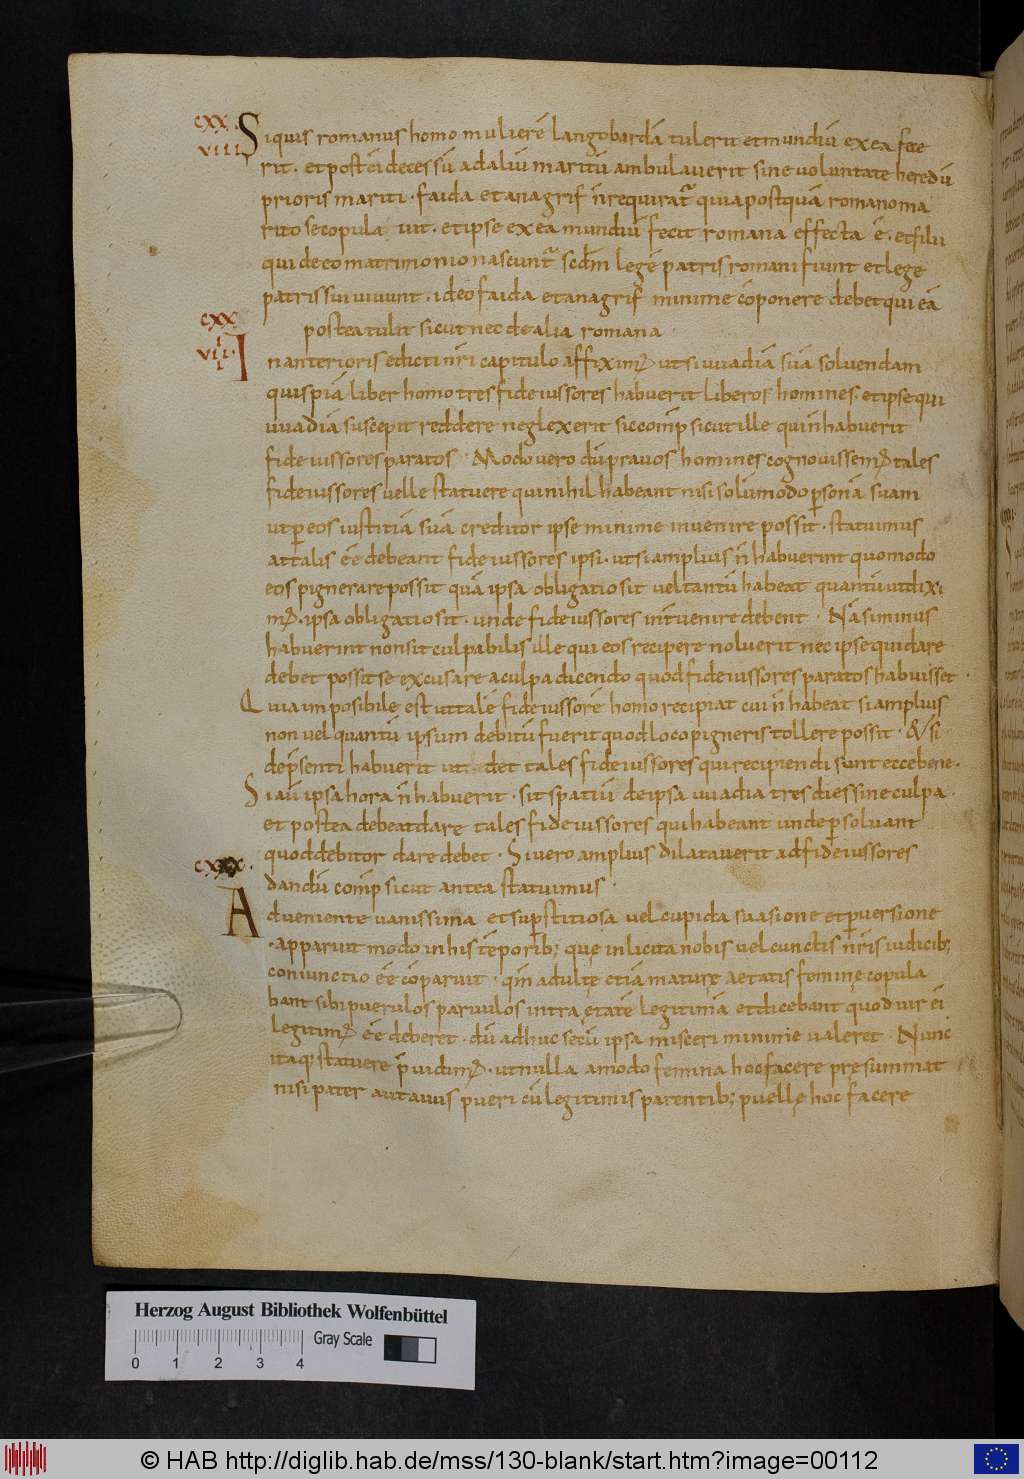 cxx
viii
Siquis romanus homo mulierē langobardā tulerit et mundiū ex ea fece
rit · et post ei(us) decessū ad aliū maritū ambulaverit sine voluntate heredū
prioris mariti · faida et anagrif n̄ requirat(ur) quia postquā romano ma
rito se copulavit · et ipse ex ea mundiū fecit romana effecta ē · et filii
qui de eo matrimonio nascunt(ur) scdm̄ legē patris romani fiunt et lege
patris sui vivunt · ideo faida et anagrif minime cōponere debet qui eā
postea tulit sicut nec de alia romana ·
cxx
viiii
In anterioris edicti nr̄i capitulo affixim(us) ut si uuadiā suā solvendam
quispiā liber homo tres fideiussores habuerit liberos homines · et ipse qui
uuadiā suscepit reddere neglexerit sic cōmp̄ sicut ille qui n̄ habuerit
fideiussores paratos · Modo vero dū pravos homines cognovissem(us) tales
fideiussores velle statuere qui nihil habeant nisi solūmodo p̱sonā suam
ut p̱ eos iustitiā suā creditor ipse minime invenire possit · statuimus
at talis ēē debeant fideiussores ipsi · ut si amplius n̄ habuerint quomodo
eos pignerare possit quā ipsa obligatio sit vel tantū habeat quantū ut dixi
m(us) · ipsa obligatio sit · unde fideiussores int̄venire debent · Nā si minus
habuerint non sit culpabilis ille qui eos recipere noluerit nec ipse qui dare
debet possit se excusare a culpa dicendo quod fideiussores paratos habuisset ·
Quia imposibile est ut talē fideiussorē homo recipiat cui n̄ habeat si amplius
non vel quantū ipsum debitū fuerit quod loco pigneris tollere possit · & si
de p̄senti habuerit ut det tales fideiussores qui recipiendi sunt ecce bene ·
Si aū ipsa hora n̄ habuerit · sit spatiū de ipsa uuadia tres dies sine culpa ·
et postea debeat dare tales fideiussores qui habeant unde p̱solvant
quod debitor dare debet · Si vero amplius dilataverit ad fideiussores
dandū cōmp̄ sicut antea statuimus ·
cxxx ·
Adveniente vanissima et sup̱stitiosa vel cupida suasione et p̱versione
· apparuit modo in his tēporib; quę inlicita nobis vel cunctis nr̄is iudicib;
coniunctio ēē cōparuit · qm̄ adultę etiā maturę aetatis feminę copula
bant sibi puerulos parvulos intra ętatē legitimā et dicebant quod vir ei
legitim(us) ēē deberet · dū adhuc secū ipsa misceri minime valeret · Nunc
itaq; statuere p̄vidim(us) · ut nulla amodo femina hoc facere presummat
nisi pater aut avus pueri cū legitimis parentib; puellę hoc facere
Herzog August Bibliothek Wolfenbüttel
Gray Scale
0 1 2 3 4
© HAB http://diglib.hab.de/mss/130-blank/start.htm?image=00112